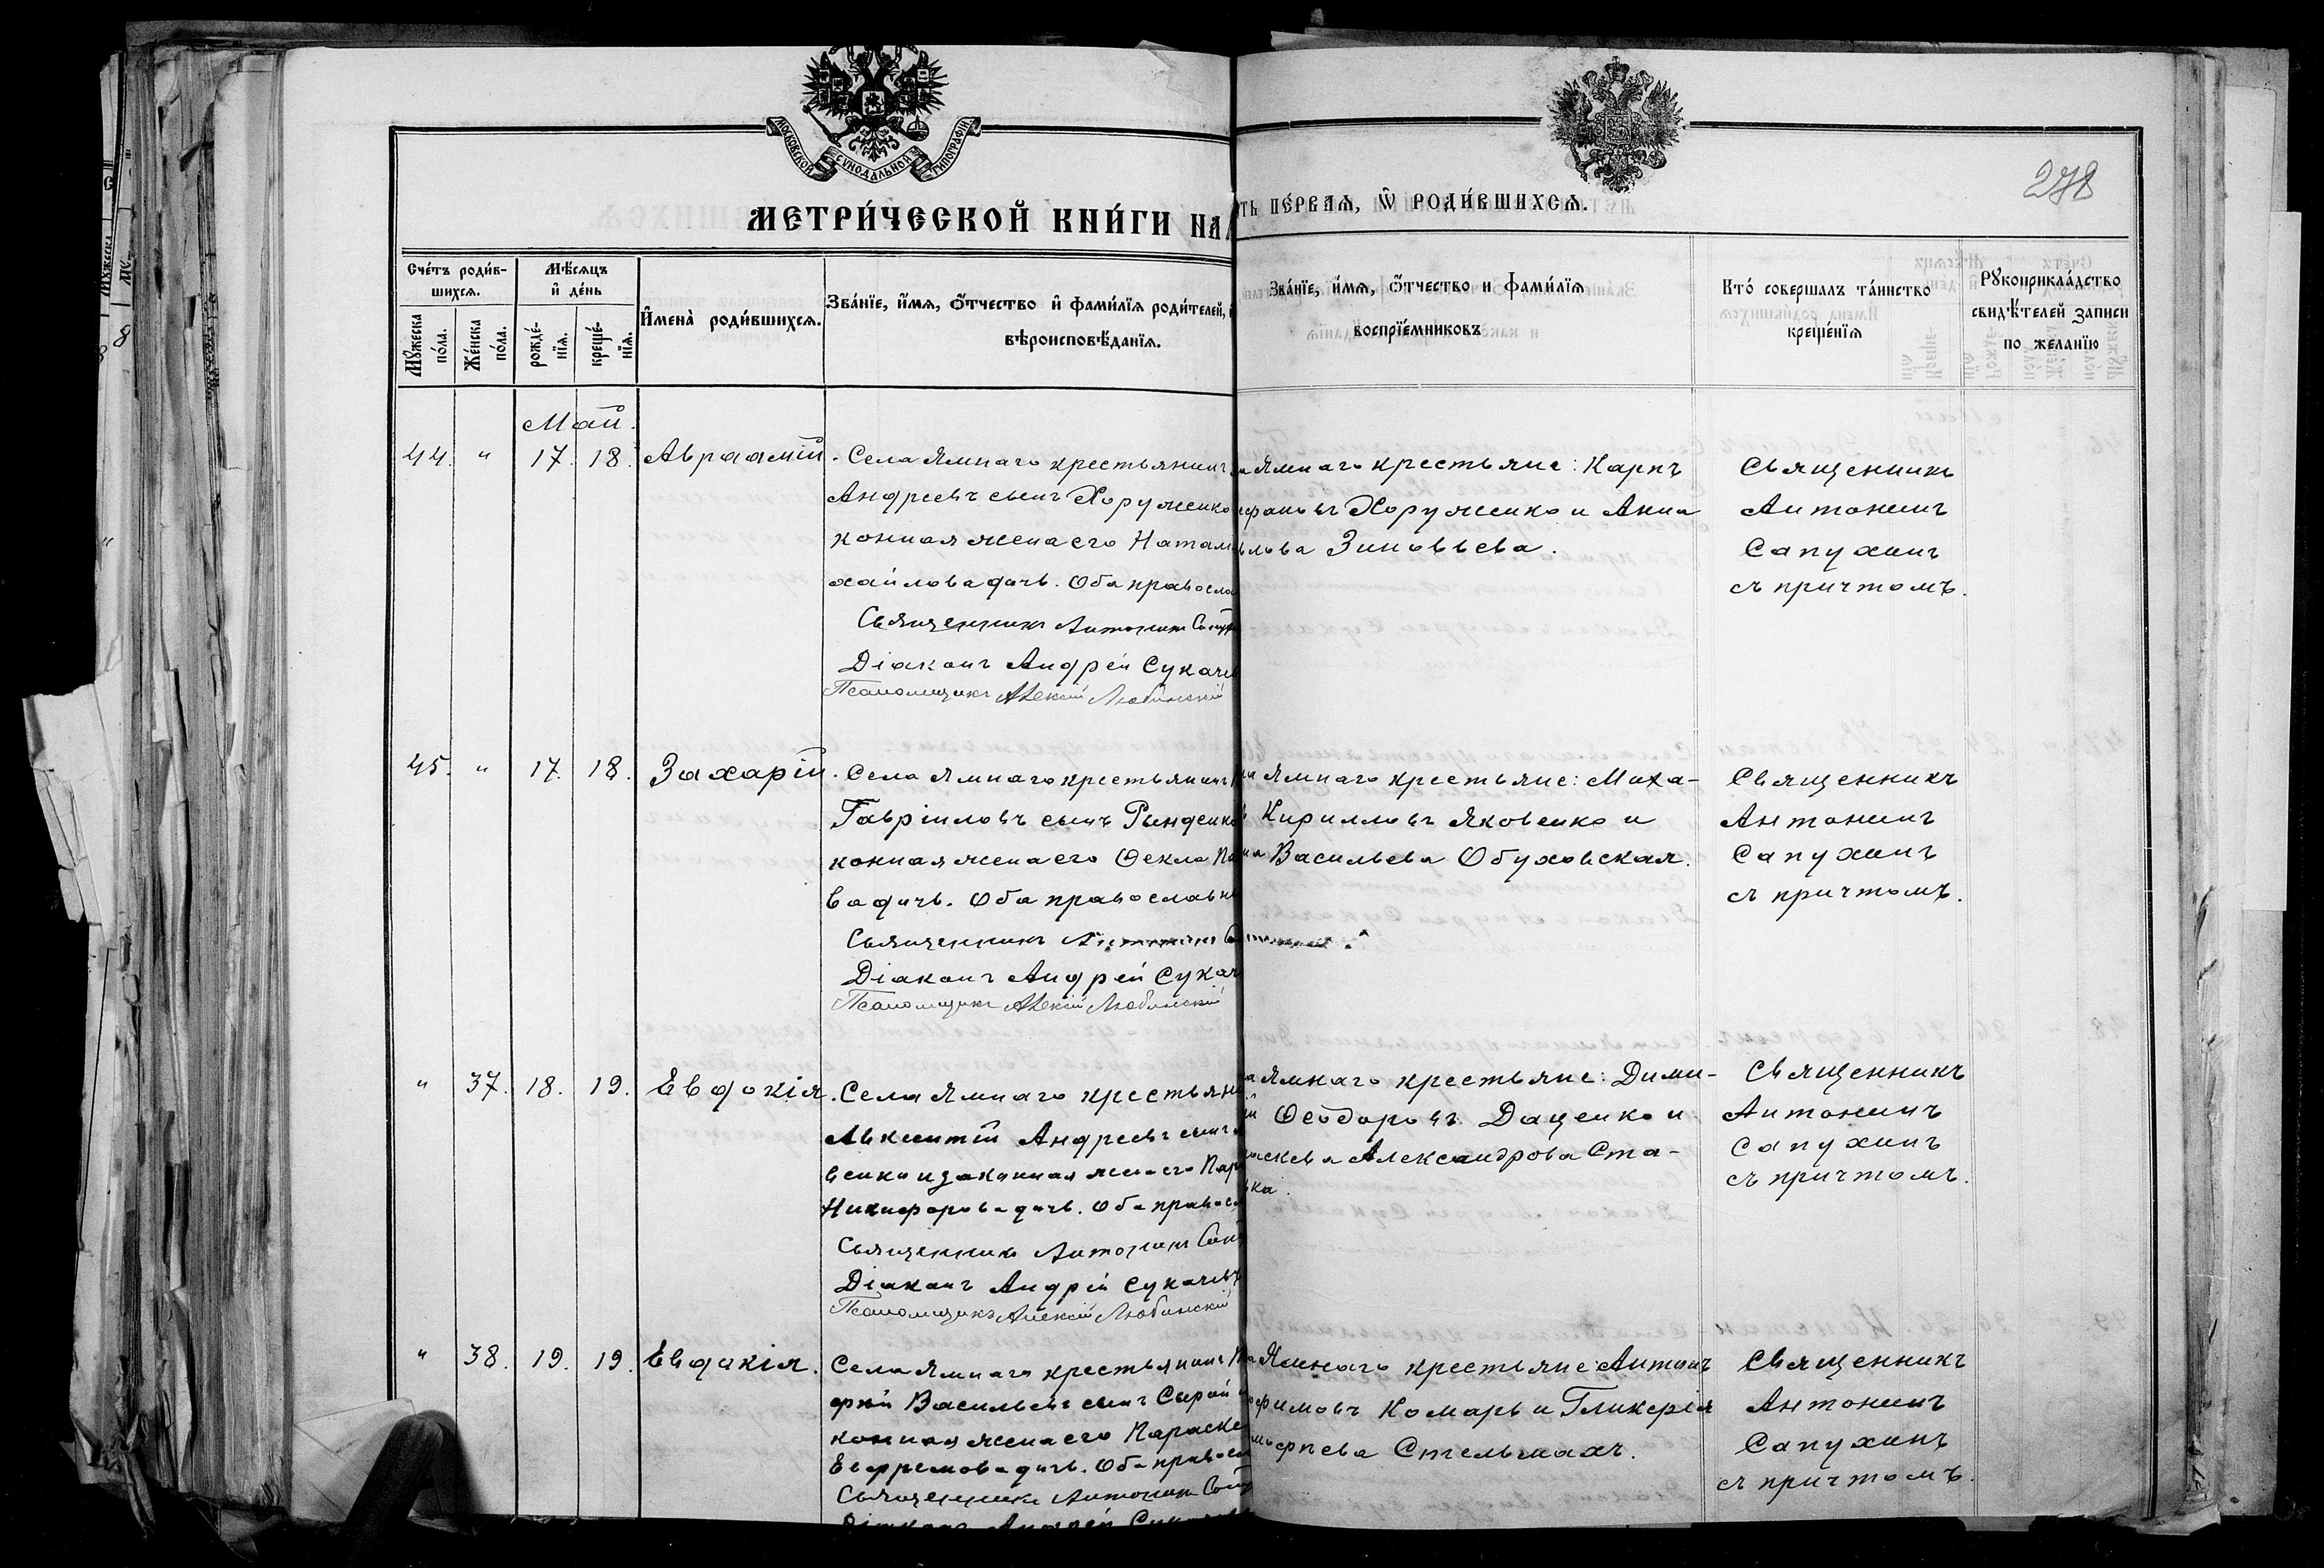 МОСКОВСКОЙ СУНОДАЛЬНОЙ ТИПОГРАФІИ
МЕТРИ́ЧЕСКОЙ КНИ́ГИ НА
ТЬ ПЕ́РВАЯ, Ѡ РОДИ́ВШИХСЯ.
278
Сче́тъ роди́в-
шихся.
Мѣ́сяцъ
и де́нь
Му́жеска по́ла.
Же́нска по́ла.
рожде́-нїя.
креще́-нїя.
И҆мена̀ роди́вшихся.
Зва́нїе, и҆́мя, о҆́тчество и҆ фами́лїя роди́телей,
вѣроисповѣ́данїя.
Зва́нїе, и҆́мя, о҆́тчество и фами́лїя
воспрїе́мниковъ
Кто́ соверша́лъ та́инство
креще́нїя
Рукоприкла́дство
свидѣ́телей записи
по жела́нїю
Май.
44. " 17. 18. Авраамій. Села Ямнаго крестьянинъ
Андреевъ сынъ Хоруженко
конная жена его Натал
хайлова дочь. Оба правосла
Священникъ Антонинъ Сапух
Діаконъ Андрей Сукачев
Псаломщикъ Алексій Любинскій
Ямнаго крестьяне: Карпъ
Хоруженко и Анна
влова Зиновьева.
Священникъ
Антонинъ
Сапухинъ
съ причтомъ.
45. " 17. 18. Захарій. Села Ямнаго крестьянинъ
Гавріиловъ сынъ Рынденко
конная жена его Ѳекла Па
ва дочь. Оба православн
Священникъ Антонинъ
Діаконъ Андрей Сукач
Псаломщикъ Алексій Любинскій
Ямнаго крестьяне: Миха-
Кирилловъ Яковенко и
Васильева Обуховская.
Священникъ
Антонинъ
Сапухинъ
съ причтомъ.
" 37. 18. 19. Евдокія. Села Ямнаго крестьяни
Авксентій Андреевъ сынъ
венко и законная жена его Пар
Никифорова дочь. Оба правосл
Священникъ Антонинъ Сап
Діаконъ Андрей Сукачевъ
Псаломщикъ Алексій Любинскій
Ямнаго крестьяне: Дими-
й Ѳеодоровъ Даценко и
раскева Александрова Ста-
вка.
Священникъ
Антонинъ
Сапухинъ
съ причтомъ.
" 38. 19. 19. Евдокія. Села Ямнаго крестьянинъ
фій Васильевъ сынъ Сырой
конная жена его Параске
Ефремова дочь. Оба правосл
Священникъ Антонинъ Сап
Діаконъ Андрей Сукачев
Ямнаго крестьяне: Антонъ
офимовъ Комаръ и Гликерія
Стельмахъ.
Священникъ
Антонинъ
Сапухинъ
съ причтомъ.